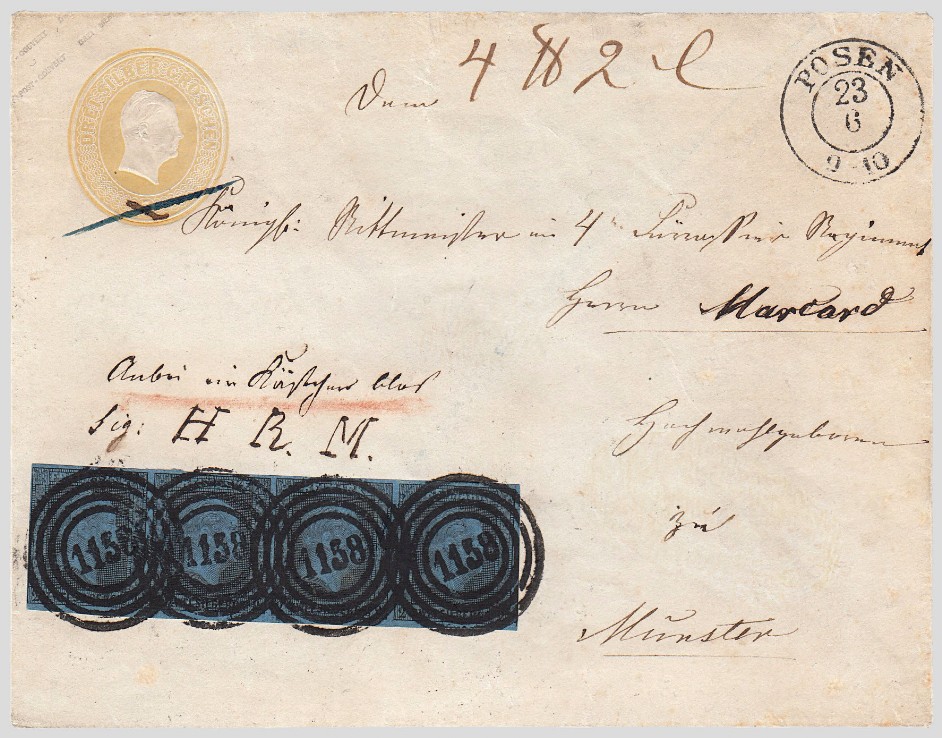 POST-COUVERT
DREI SILBERGROSCHEN
4 ℔ 2 l
POSEN
23
6
9-10
Dem
Königl: Rittmeister im 4ᵗ Cürassier Regiment
Herrn Marcard
Anbei ein Kästchen blos
sig: H R. M.
Hochwohlgeboren
1158 1158 1158 1158
zu
Münster